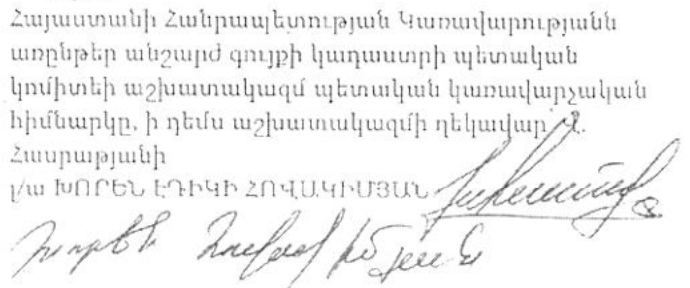 Հայաստանի Հանրապետության Կառավարությանն
առընթեր անշարժ գույքի կադաստրի պետական
կոմիտեի աշխատակազմ պետական կառավարչական
հիմնարկը, ի դեմս աշխատակազմի ղեկավար Ա.
Հասրաթյանի
լ/ա ԽՈՐԵՆ ԷԴԻԿԻ ՀՈՎԱԿԻՄՅԱՆ
Խորեն Հովակիմյան